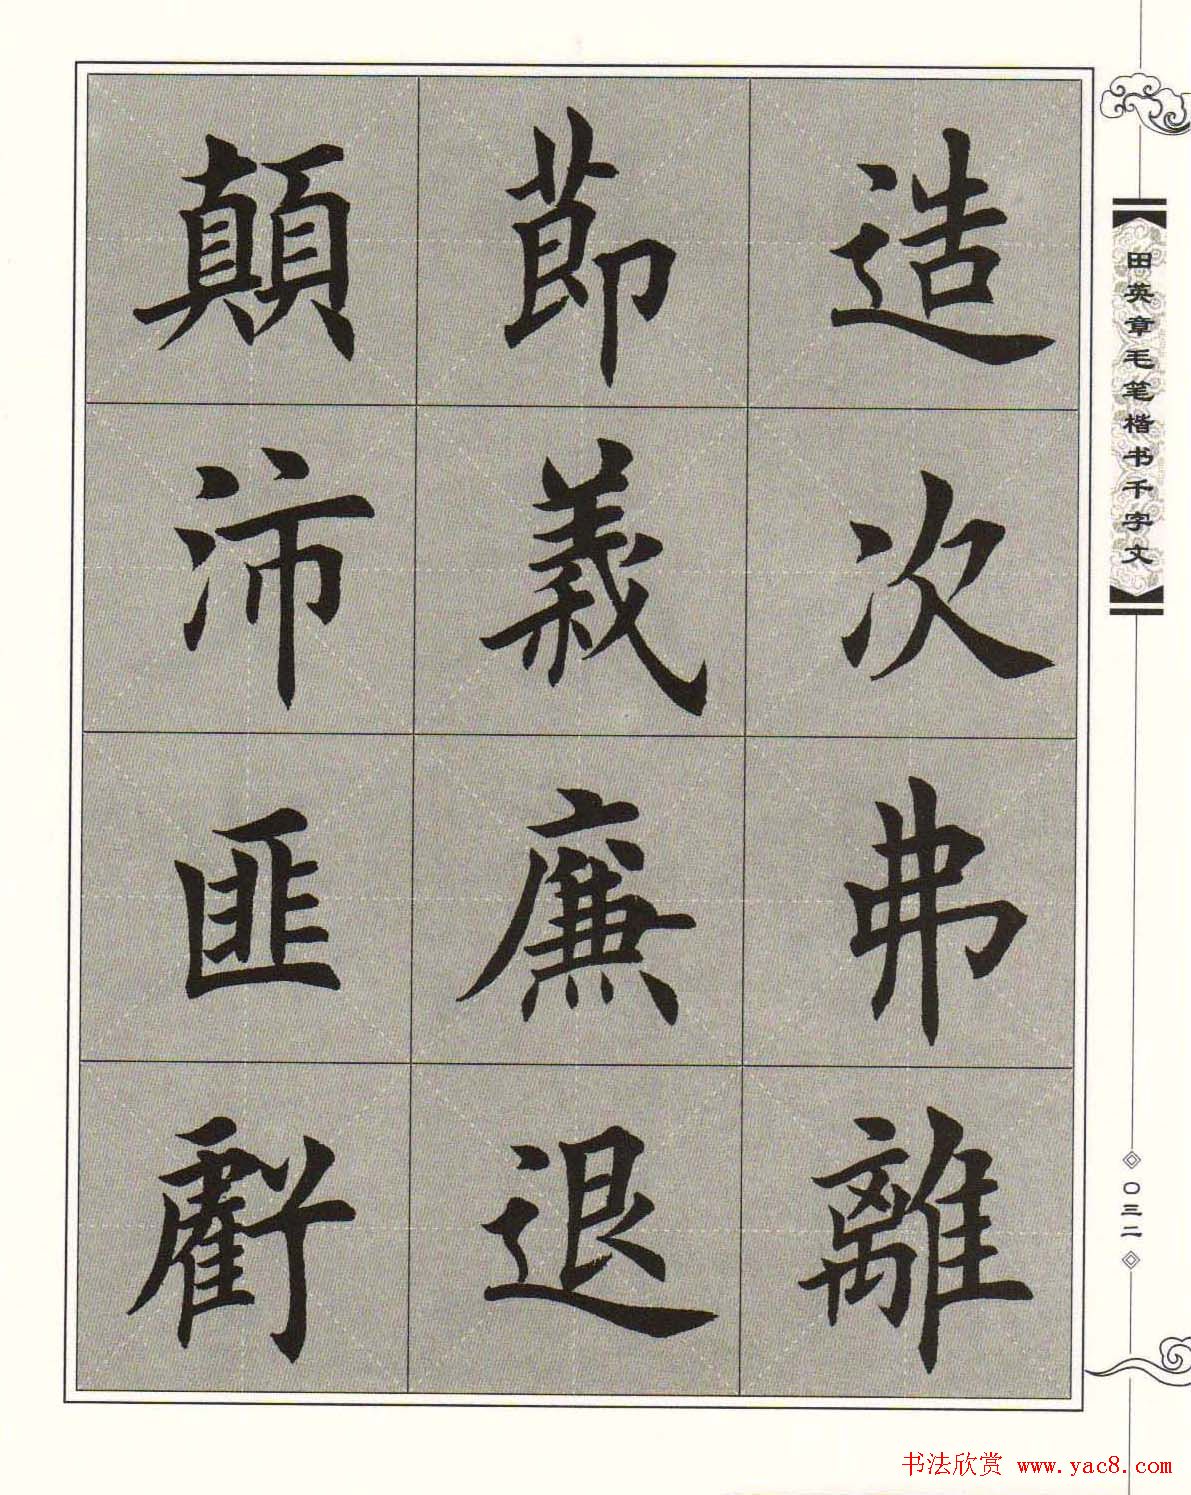 造次弗離
節義廉退
顛沛匪虧
田英章毛笔楷书千字文
〇三二
书法欣赏 www.yac8.com